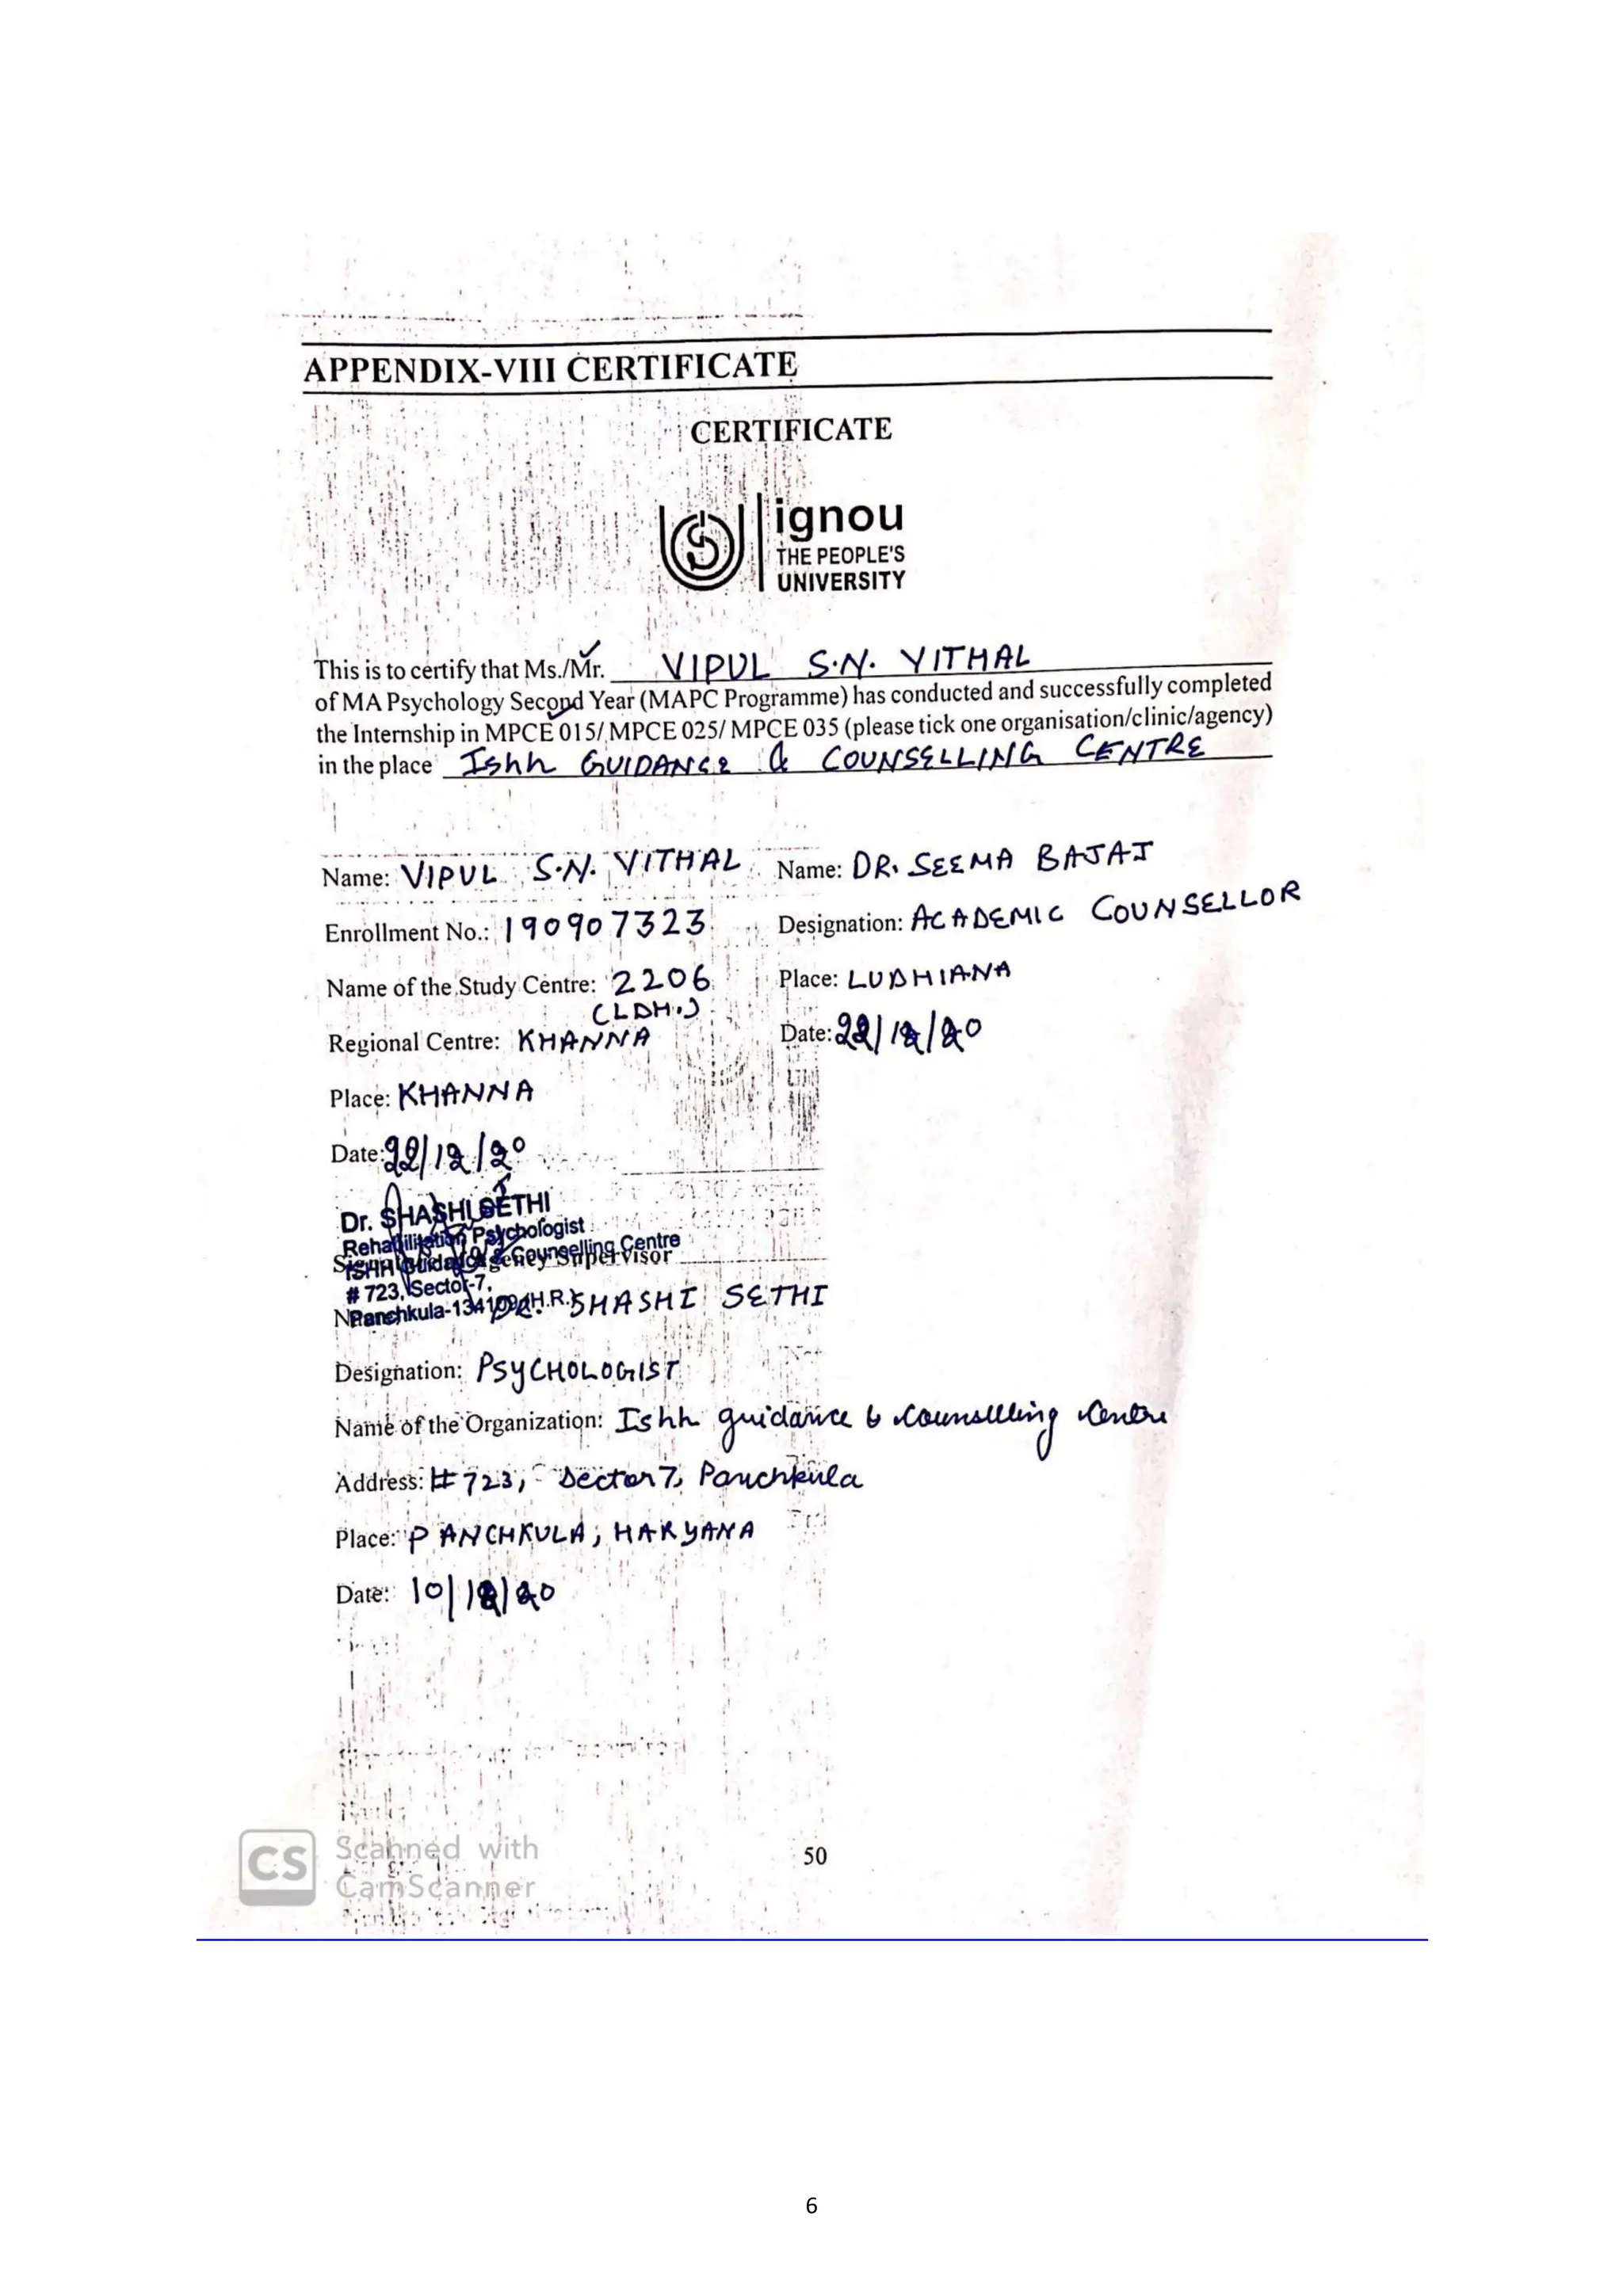 APPENDIX-VIII CERTIFICATE
CERTIFICATE
ignou
THE PEOPLE'S
UNIVERSITY
This is to certify that Ms./Mr. VIPUL S.N. VITHAL
of MA Psychology Second Year (MAPC Programme) has conducted and successfully completed
the Internship in MPCE 015/ MPCE 025/ MPCE 035 (please tick one organisation/clinic/agency)
in the place Ishh GUIDANCE & COUNSELLING CENTRE
Name: VIPUL S.N. VITHAL
Enrollment No.: 190907323
Name of the Study Centre: 2206
(LDH.)
Regional Centre: KHANNA
Place: KHANNA
Date: 22/12/20
Name: DR. SEEMA BAJAJ
Designation: ACADEMIC COUNSELLOR
Place: LUDHIANA
Date: 22/12/20
Dr. SHASHI SETHI
Rehabilitation Psychologist
ISHH Guidance & Counselling Centre
Agency Supervisor
# 723, Sector-7,
Panchkula-134109 (H.R.)
DR. SHASHI SETHI
Designation: PSYCHOLOGIST
Name of the Organization: Ishh guidance & Counselling Centre
Address: # 723, Sector 7, Panchkula
Place: PANCHKULA, HARYANA
Date: 10/12/20
50
CS Scanned with
CamScanner
6